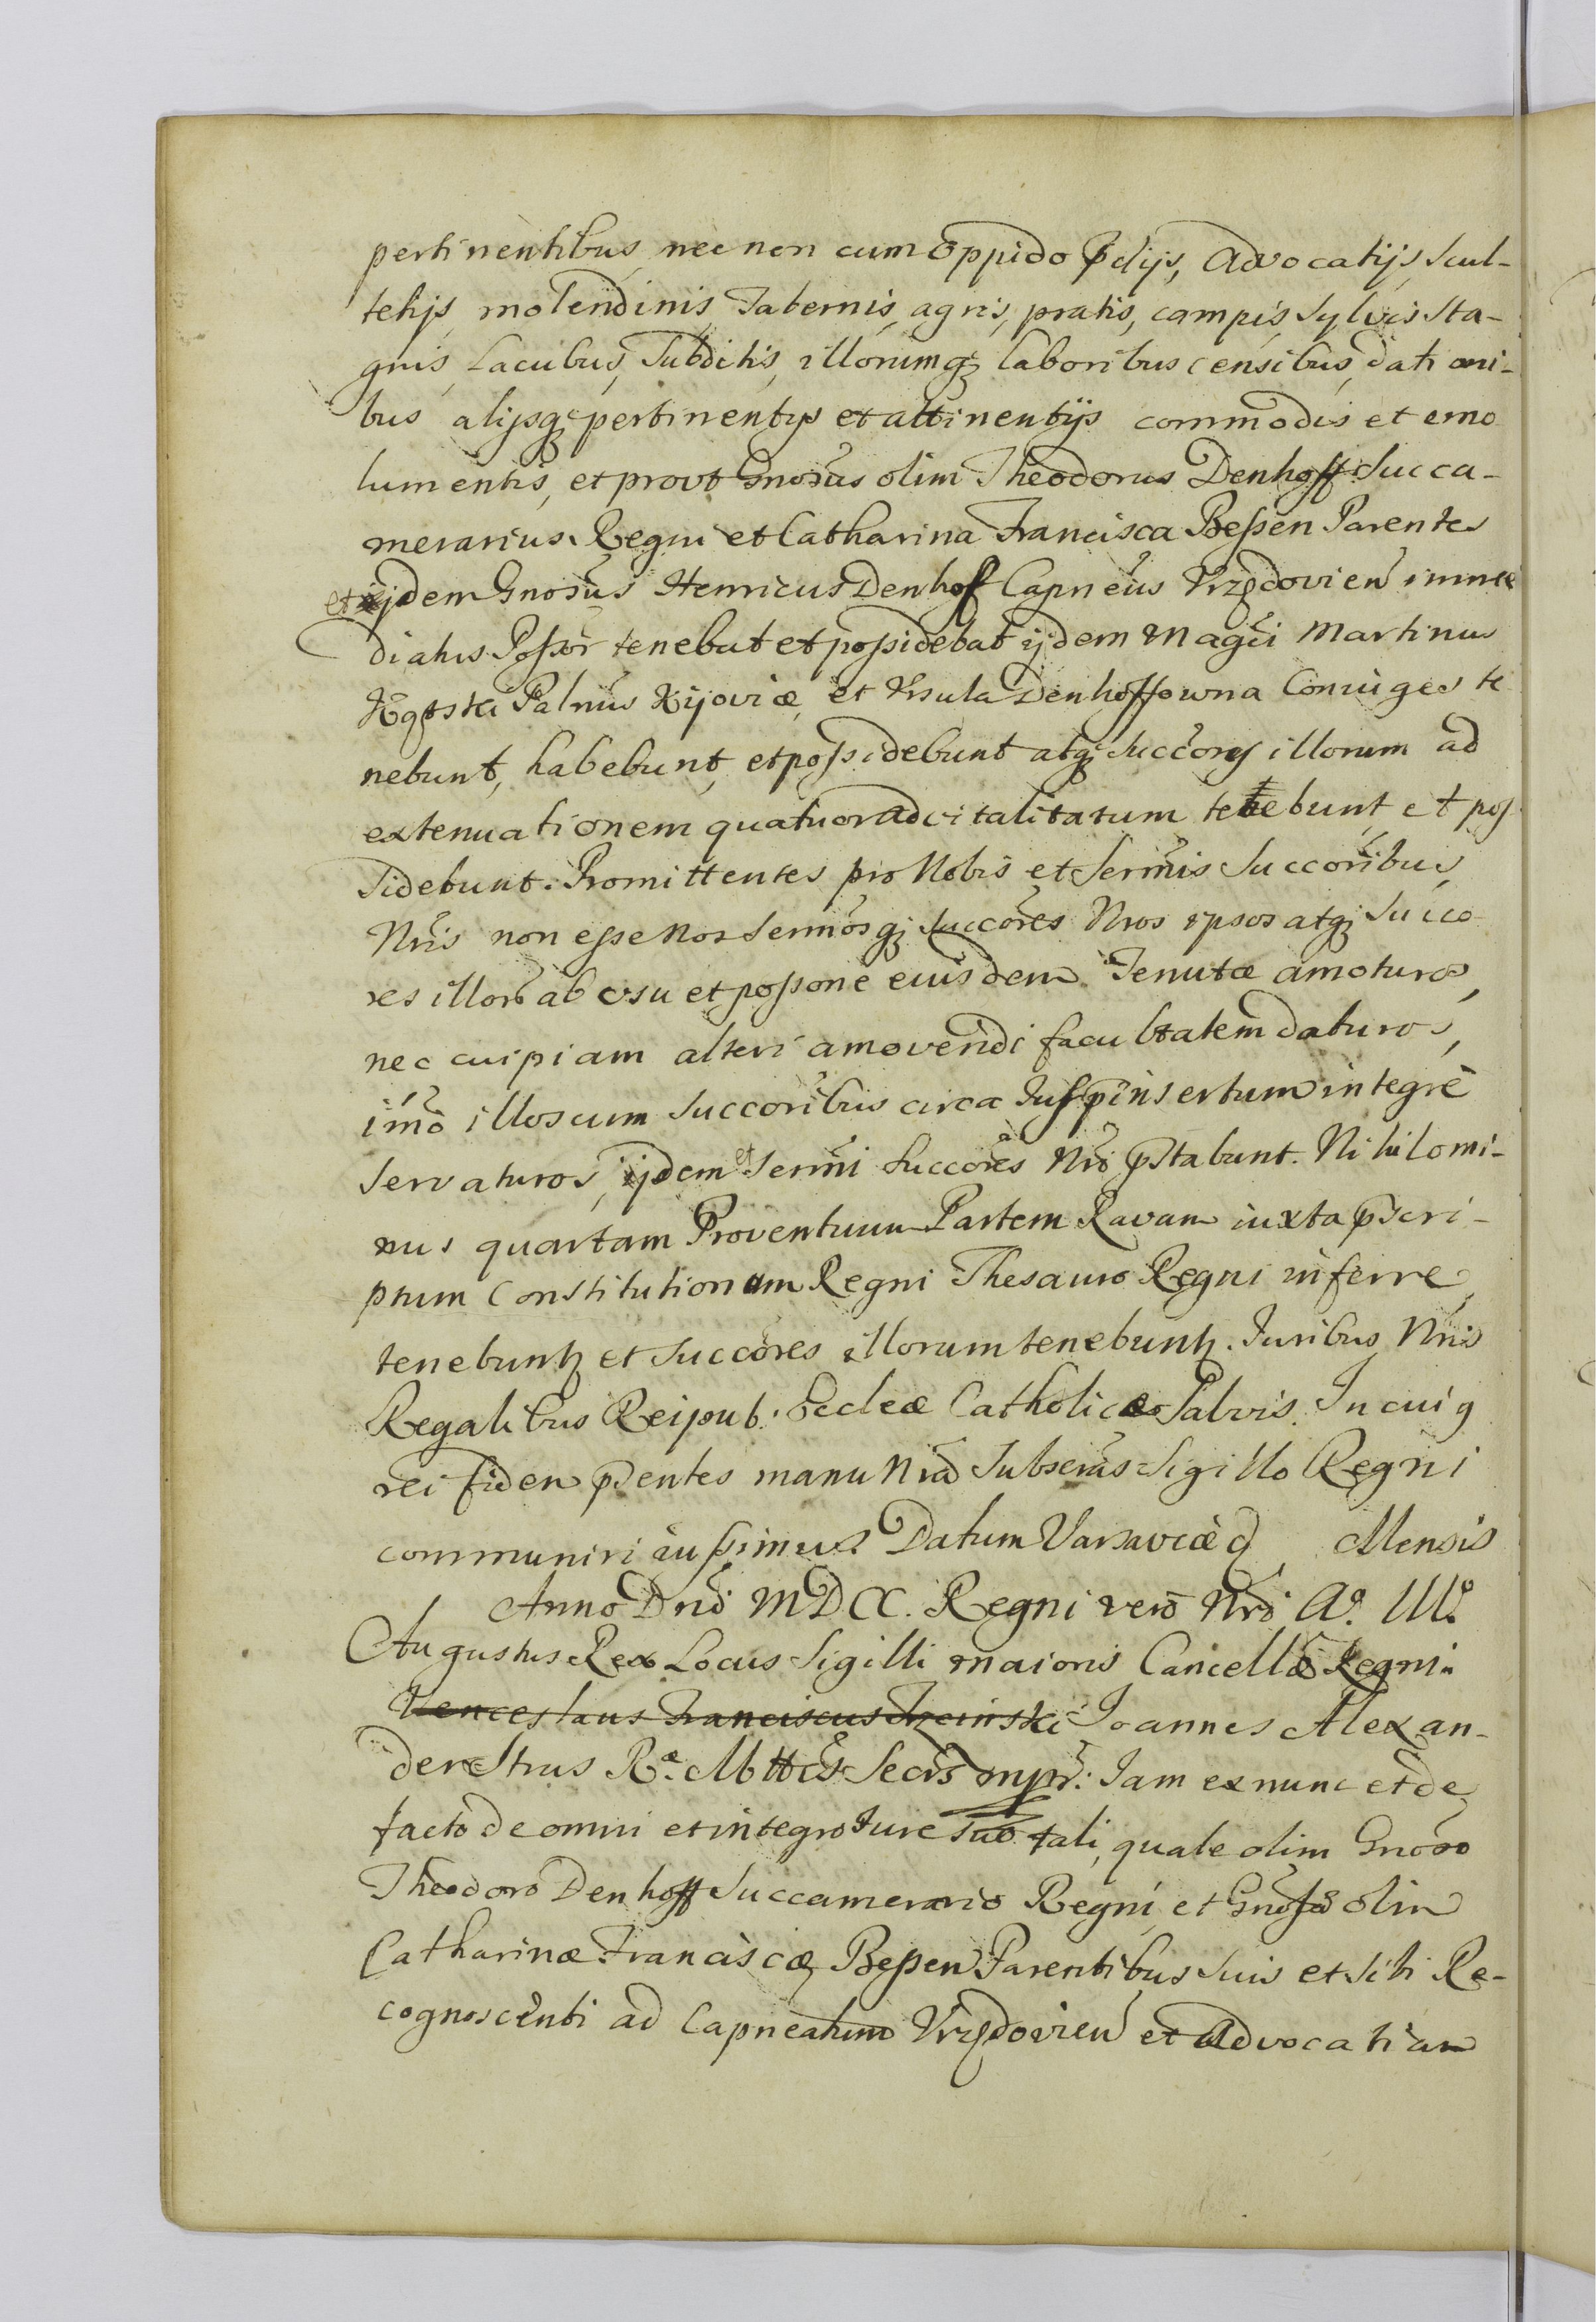 pertinentibus, nec non cum oppido p̄dijs, Advocatijs, Scul-
tetijs, molendinis, Tabernis, agris, pratis, campis, Sylvis, Sta-
gnis, Lacubus, Subditis, illorumq; laboribus censibus, dationi-
bus alijsq; pertinentijs et attinentijs commodis et emo
lumentis, et provt Gnosus olim Theodorus Denhoff Succa-
merarius Regni et Catharina Francisca Bessen Parentes
et ijdem Gnosus Henricus Denhof Capneus Vrzędovien̄ imme
diatus Possor tenebat et possidebat ijdem Magci Martinus
Kątski Palnus Kijoviæ, et Vrsula Denhoffowna Coniuges te
nebunt, habebunt, et possidebunt atq; Succores illorum ad
extenuationem quatuor advitalitatum tenebunt, et pos
sidebunt. Promittentes pro Nobis et Sermis Succoribus
Nris non esse nos Sermosq; Succores Nros ipsos atq; Succo
res illorō ab vsu et possone eiusdem Tenutæ amoturos,
nec cuipiam alteri amovendi facultatem daturos,
imō illos cum Succoribus circa Jus p̄insertum integrè
servaturos, ijdem et Sermi Succores Nri p̄stabunt. Nihilomi-
nus quartam Proventuum Partem Ravam iuxta p̄scri-
ptum Constitutionum Regni Thesauro Regni inferre
tenebuntʒ et Succores illorum tenebuntʒ. Juribus Nris
Regalibus Reipub. Eccleæ Catholicæ Salvis. In cuiq
rei fidem p̄sentes manu Nra Subscras Sigillo Regni
communiri iussimus. Datum Varsaviæ d Mensis
Anno Dni MDCX. Regni vero Nri Aᵒ. IIIᵒ.
Augustus Rex Locus Sigilli maioris Cancellæ Regni.
Venceslaus Franciscus Trzcinski Joannes Alexan-
der Strus Rᵃ. Mttis Secrs mpr. Iam ex nunc et de
facto de omni et integro Jure suo tali, quale olim Gnoso
Theodoro Denhoff Succamerario Regni, et Gnosæ olim
Catharinæ Franciscæ Bessen Parentibus suis et sibi Re-
cognoscenti ad Capneatum Vrzędovien̄ et Advocatiam